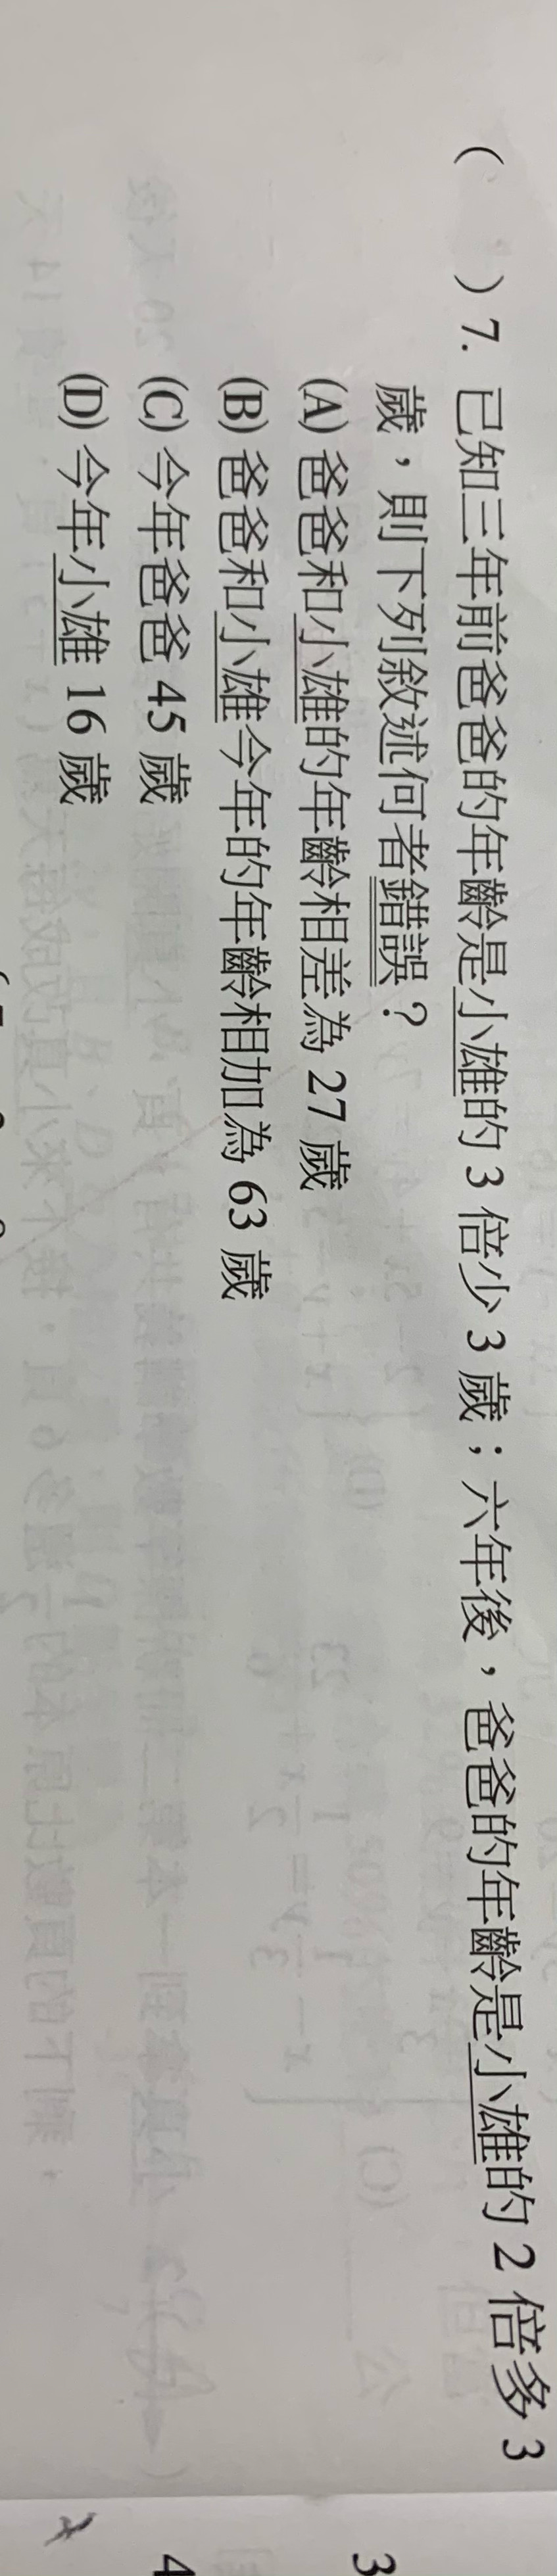 ( ) 7. 已知三年前爸爸的年齡是小雄的 3 倍少 3 歲；六年後，爸爸的年齡是小雄的 2 倍多 3
歲，則下列敘述何者錯誤？
(A) 爸爸和小雄的年齡相差為 27 歲
(B) 爸爸和小雄今年的年齡相加為 63 歲
(C) 今年爸爸 45 歲
(D) 今年小雄 16 歲
3
4